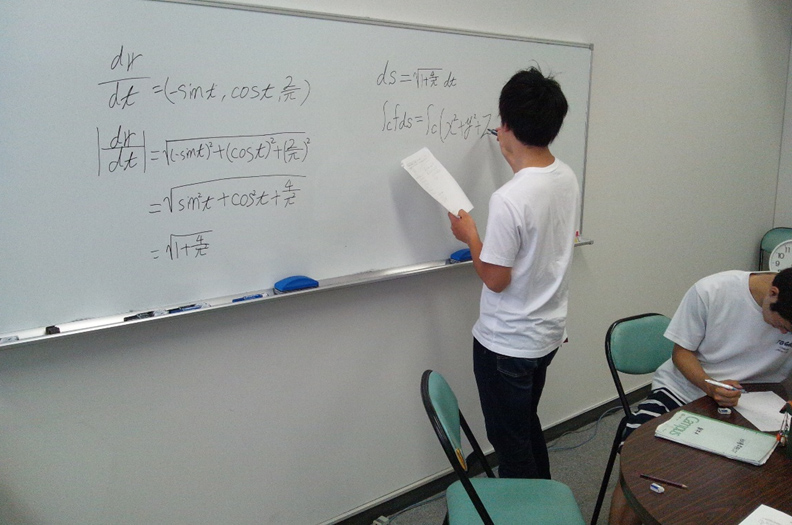 dr/dt = (-sint, cost, 2/π)
|dr/dt| = √(-sint)²+(cost)²+(2/π)²
= √sin²t + cos²t + 4/π²
= √1+4/π²
ds = √1+4/π² dt
∫c f ds = ∫c (x²+y²+z
Campus